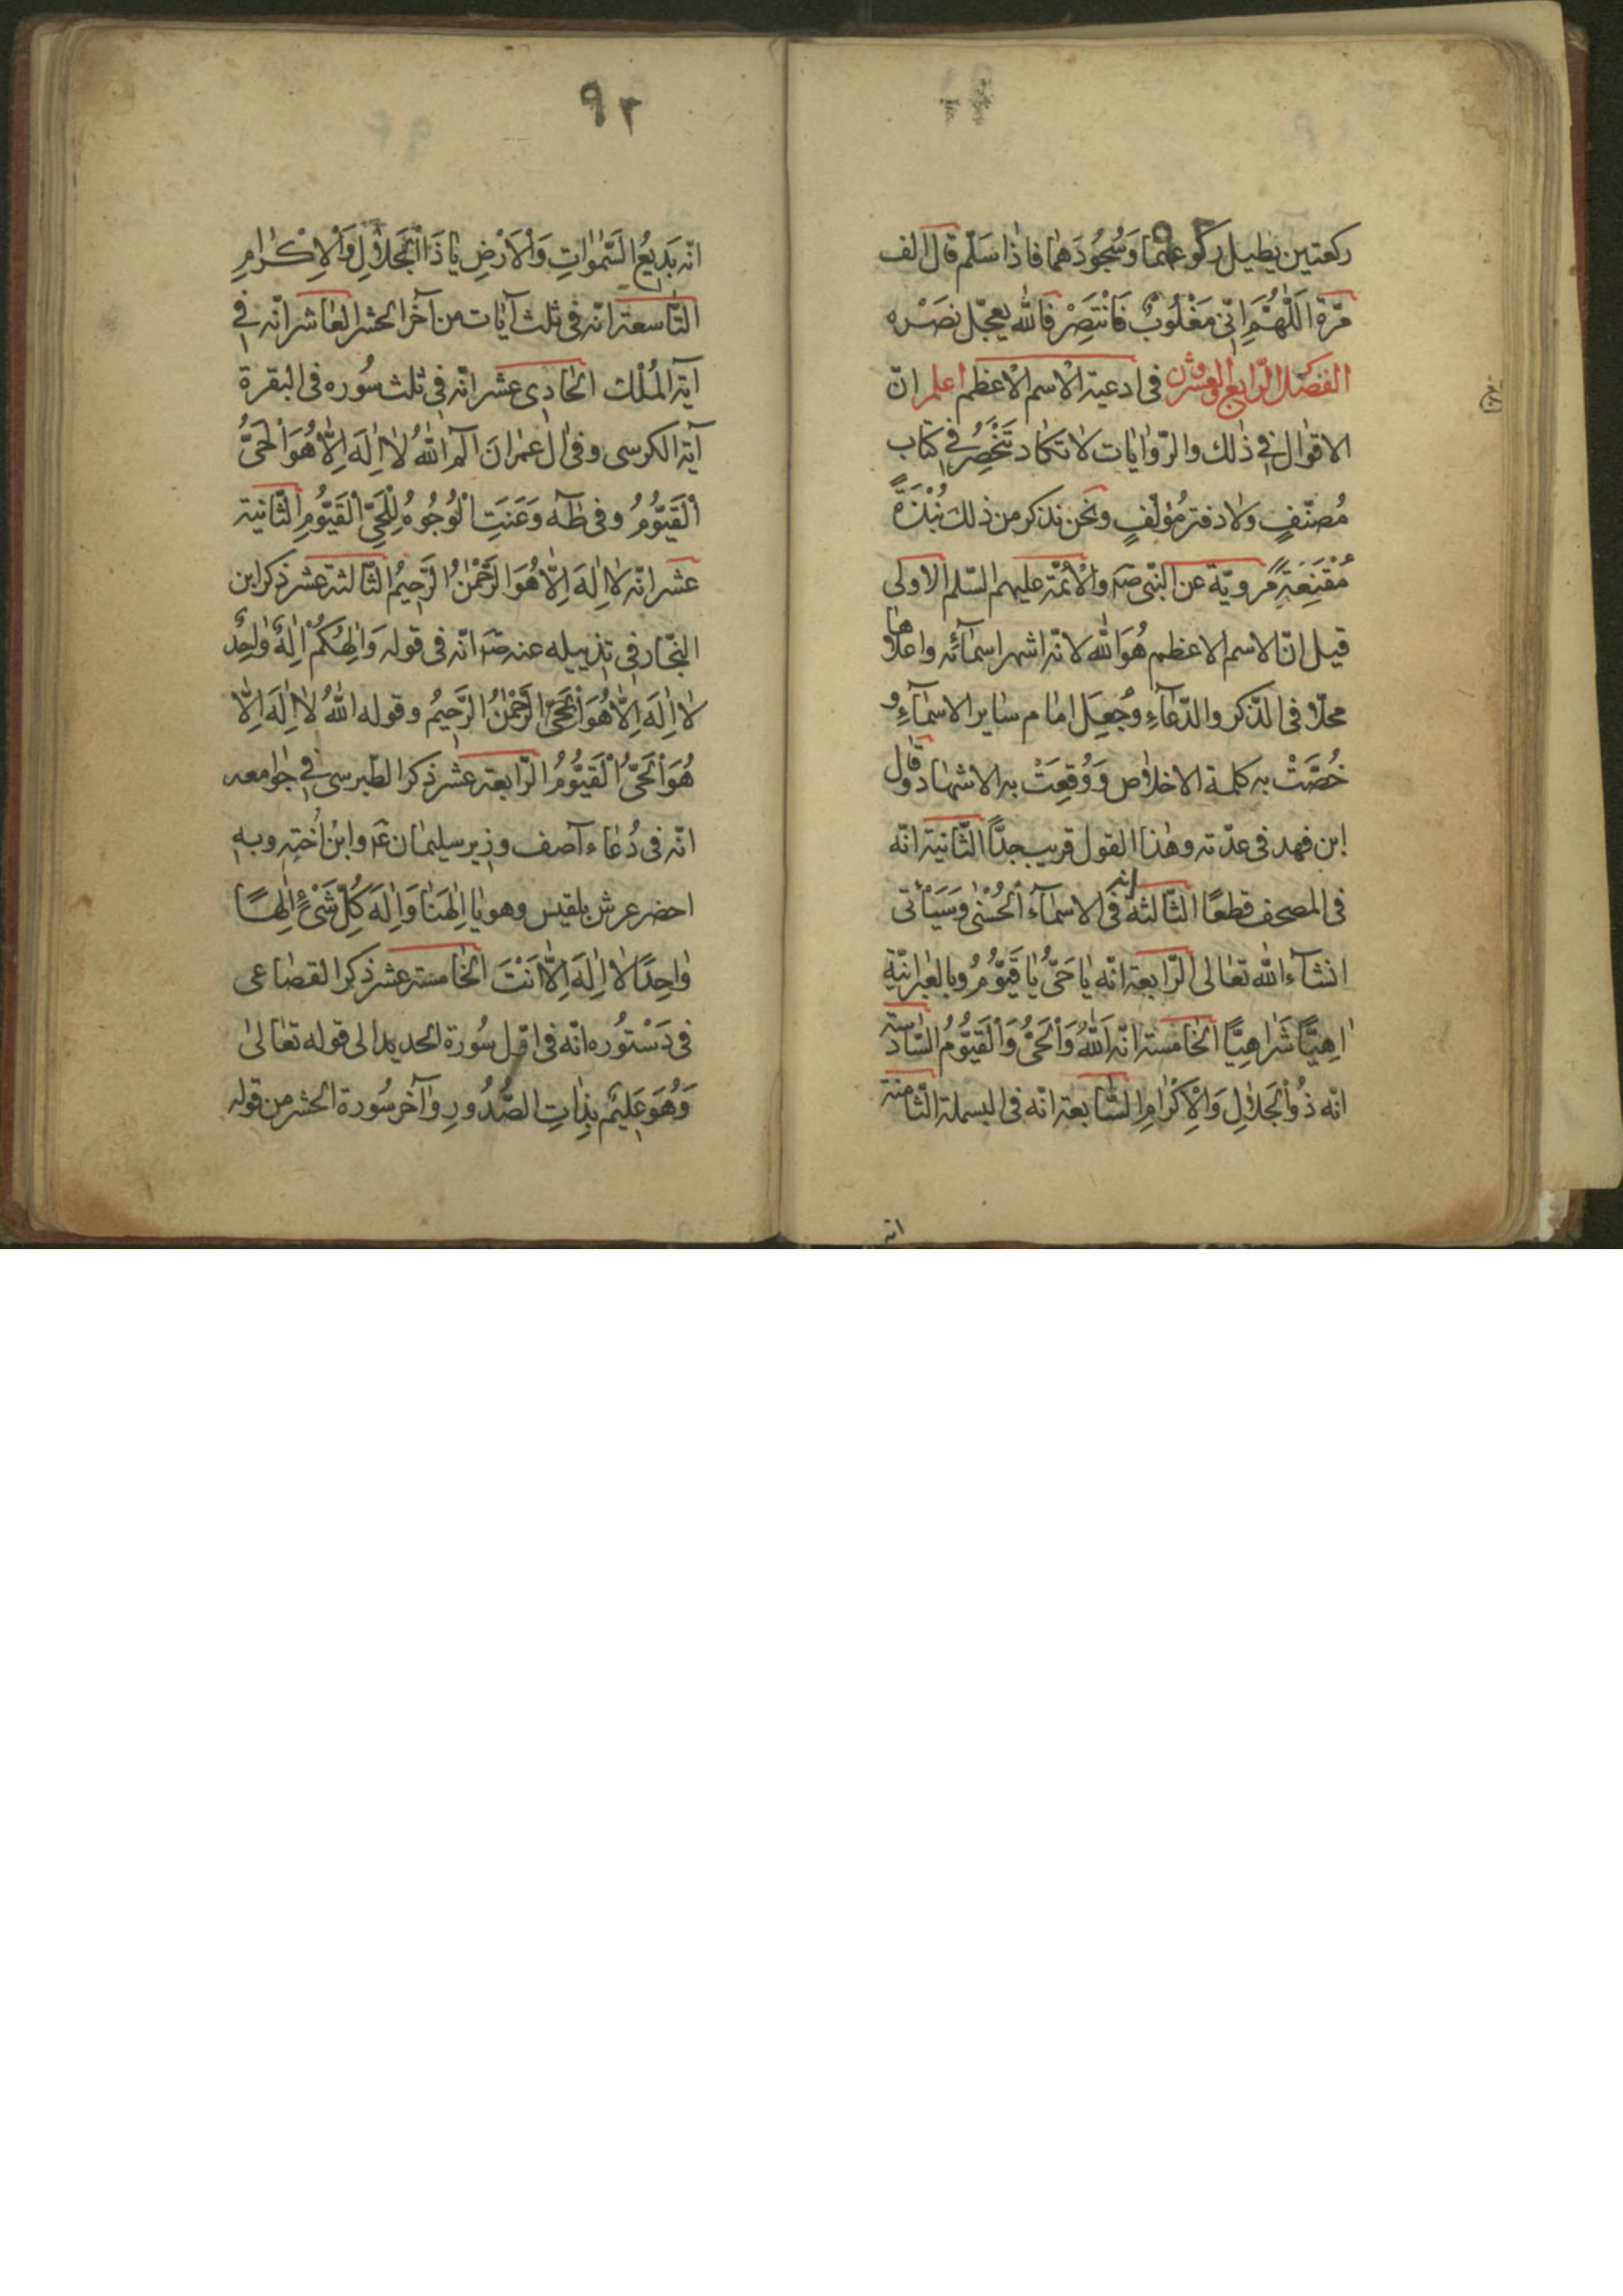 ركعتين يطيل ركوعهما وَسُجُودَهُمٰا فاذا سَلّم قال الف
مرّة اَللّٰهُمَّ اِنّى مَغْلُوبٌ فَانْتَصِرْ فالله يعجّل نصَرْه
الفصل الرّابع والعشرون فى ادعية الاسم الاعظم اعلم انّ
الاقوال فى ذٰلك والرّوايات لا تكاد تَنْحَصِرُ فى كتاب
مُصنّفٍ ولا دفتر مُؤلّفٍ ونحن نذكر من ذلك نُبْذَةً
مُقْنِعَةً مرويّة عن النّبى صه والأئمّة عليهم السّلم الاولى
قيل انّ الاسم الاعظم هُوَ الله لانّه اشهر اسمآئه واعلاها
محلّا فى الذّكر والدّعآءِ وجُعِلَ امام ساير الاسمآءِ و
خُصَّتْ به كلمة الاخلاص وَوُقِعَتْ به الاشهاد قال
ابن فهد فى عدّته وهٰذا القول قريب جدًّا الثّانية انّه
فى المصحف قطعًا الثّالثة انه فى الاسمآء الْحُسْنٰى وَسَيَأتى
انشآء الله تعالى الرّابعة انّه يا حَىُّ يا قَيّوُمُ وبالعبرانيّة
اهِيًّا شَراهِيًّا الخامسة انّه اَللّٰهُ وَالْحَىُّ وَالْقَيّوُمُ السّادسة
انّه ذُو الْجَلالِ وَالْاِكْرٰامِ السّابعة انّه فى البسملة الثّامنة
انه
٩٢
انّه بَديعُ السَّمٰوٰاتِ وَالْاَرْضِ يٰا ذَا الْجَلالِ وَالْاِكْرٰامِ
التّاسعة انّه فى ثلث آيات من آخر الحشر العاشر انّه فى
آية المُلْك الحادى عشر انّه فى ثلث سُوره فى البقرة
آية الكرسى وفى ال عمران الٓم اللهُ لا اِلٰهَ اِلّا هُوَ الْحَىُّ
الْقَيّوُمُ وفى طٰه وَعَنَتِ الْوُجُوهُ لِلْحَىِّ الْقَيّوُمِ الثّانية
عشر انّه لا اِلٰهَ اِلّا هُوَ الرَّحْمٰنُ الرَّحيمُ الثّالثة عشر ذكر ابن
النجّار فى تذييله عنه صه انّه فى قوله وَاِلٰهُكُمْ اِلٰهٌ وٰاحِدٌ
لا اِلٰهَ اِلّا هُوَ الْحَىُّ الرَّحْمٰنُ الرَّحيمُ وقوله اللهُ لا اِلٰهَ اِلّا
هُوَ الْحَىُّ الْقَيّوُمُ الرّابعة عشر ذكر الطّبرسى فى جوامعه
انّه فى دُعاء آصف وزير سليمان ع وابْن اُختِه وبه
احضر عرش بلقيس وهو يا اِلٰهَنا وَاِلٰهَ كُلِّ شَىْءٍ اِلٰهًا
وٰاحِدًا لا اِلٰهَ اِلّا اَنْتَ الخامسة عشر ذكر القضاعى
فى دَسْتُوره انّه فى اوّل سُورة الحديد الى قوله تعالىٰ
وَهُوَ عَليمٌ بِذاتِ الصُّدُورِ وآخر سُورة الحشر من قوله